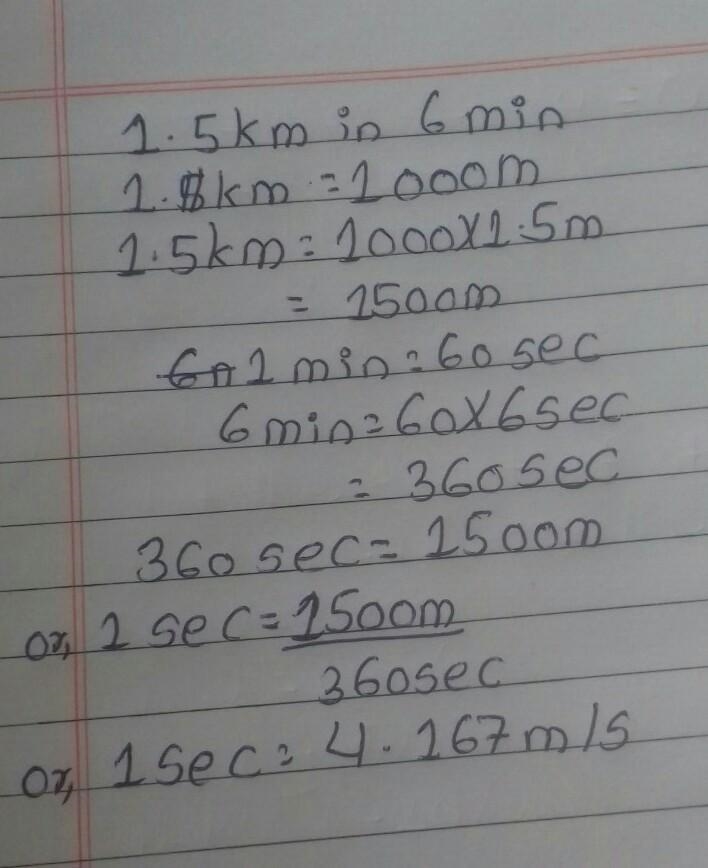 1.5km in 6 min
1.km = 1000m
1.5km = 1000X1.5m
= 1500m
1 min = 60 sec
6min = 60X6sec
= 360sec
360 sec = 1500m
or, 1 sec = 1500m
360sec
or, 1sec = 4.167m/s